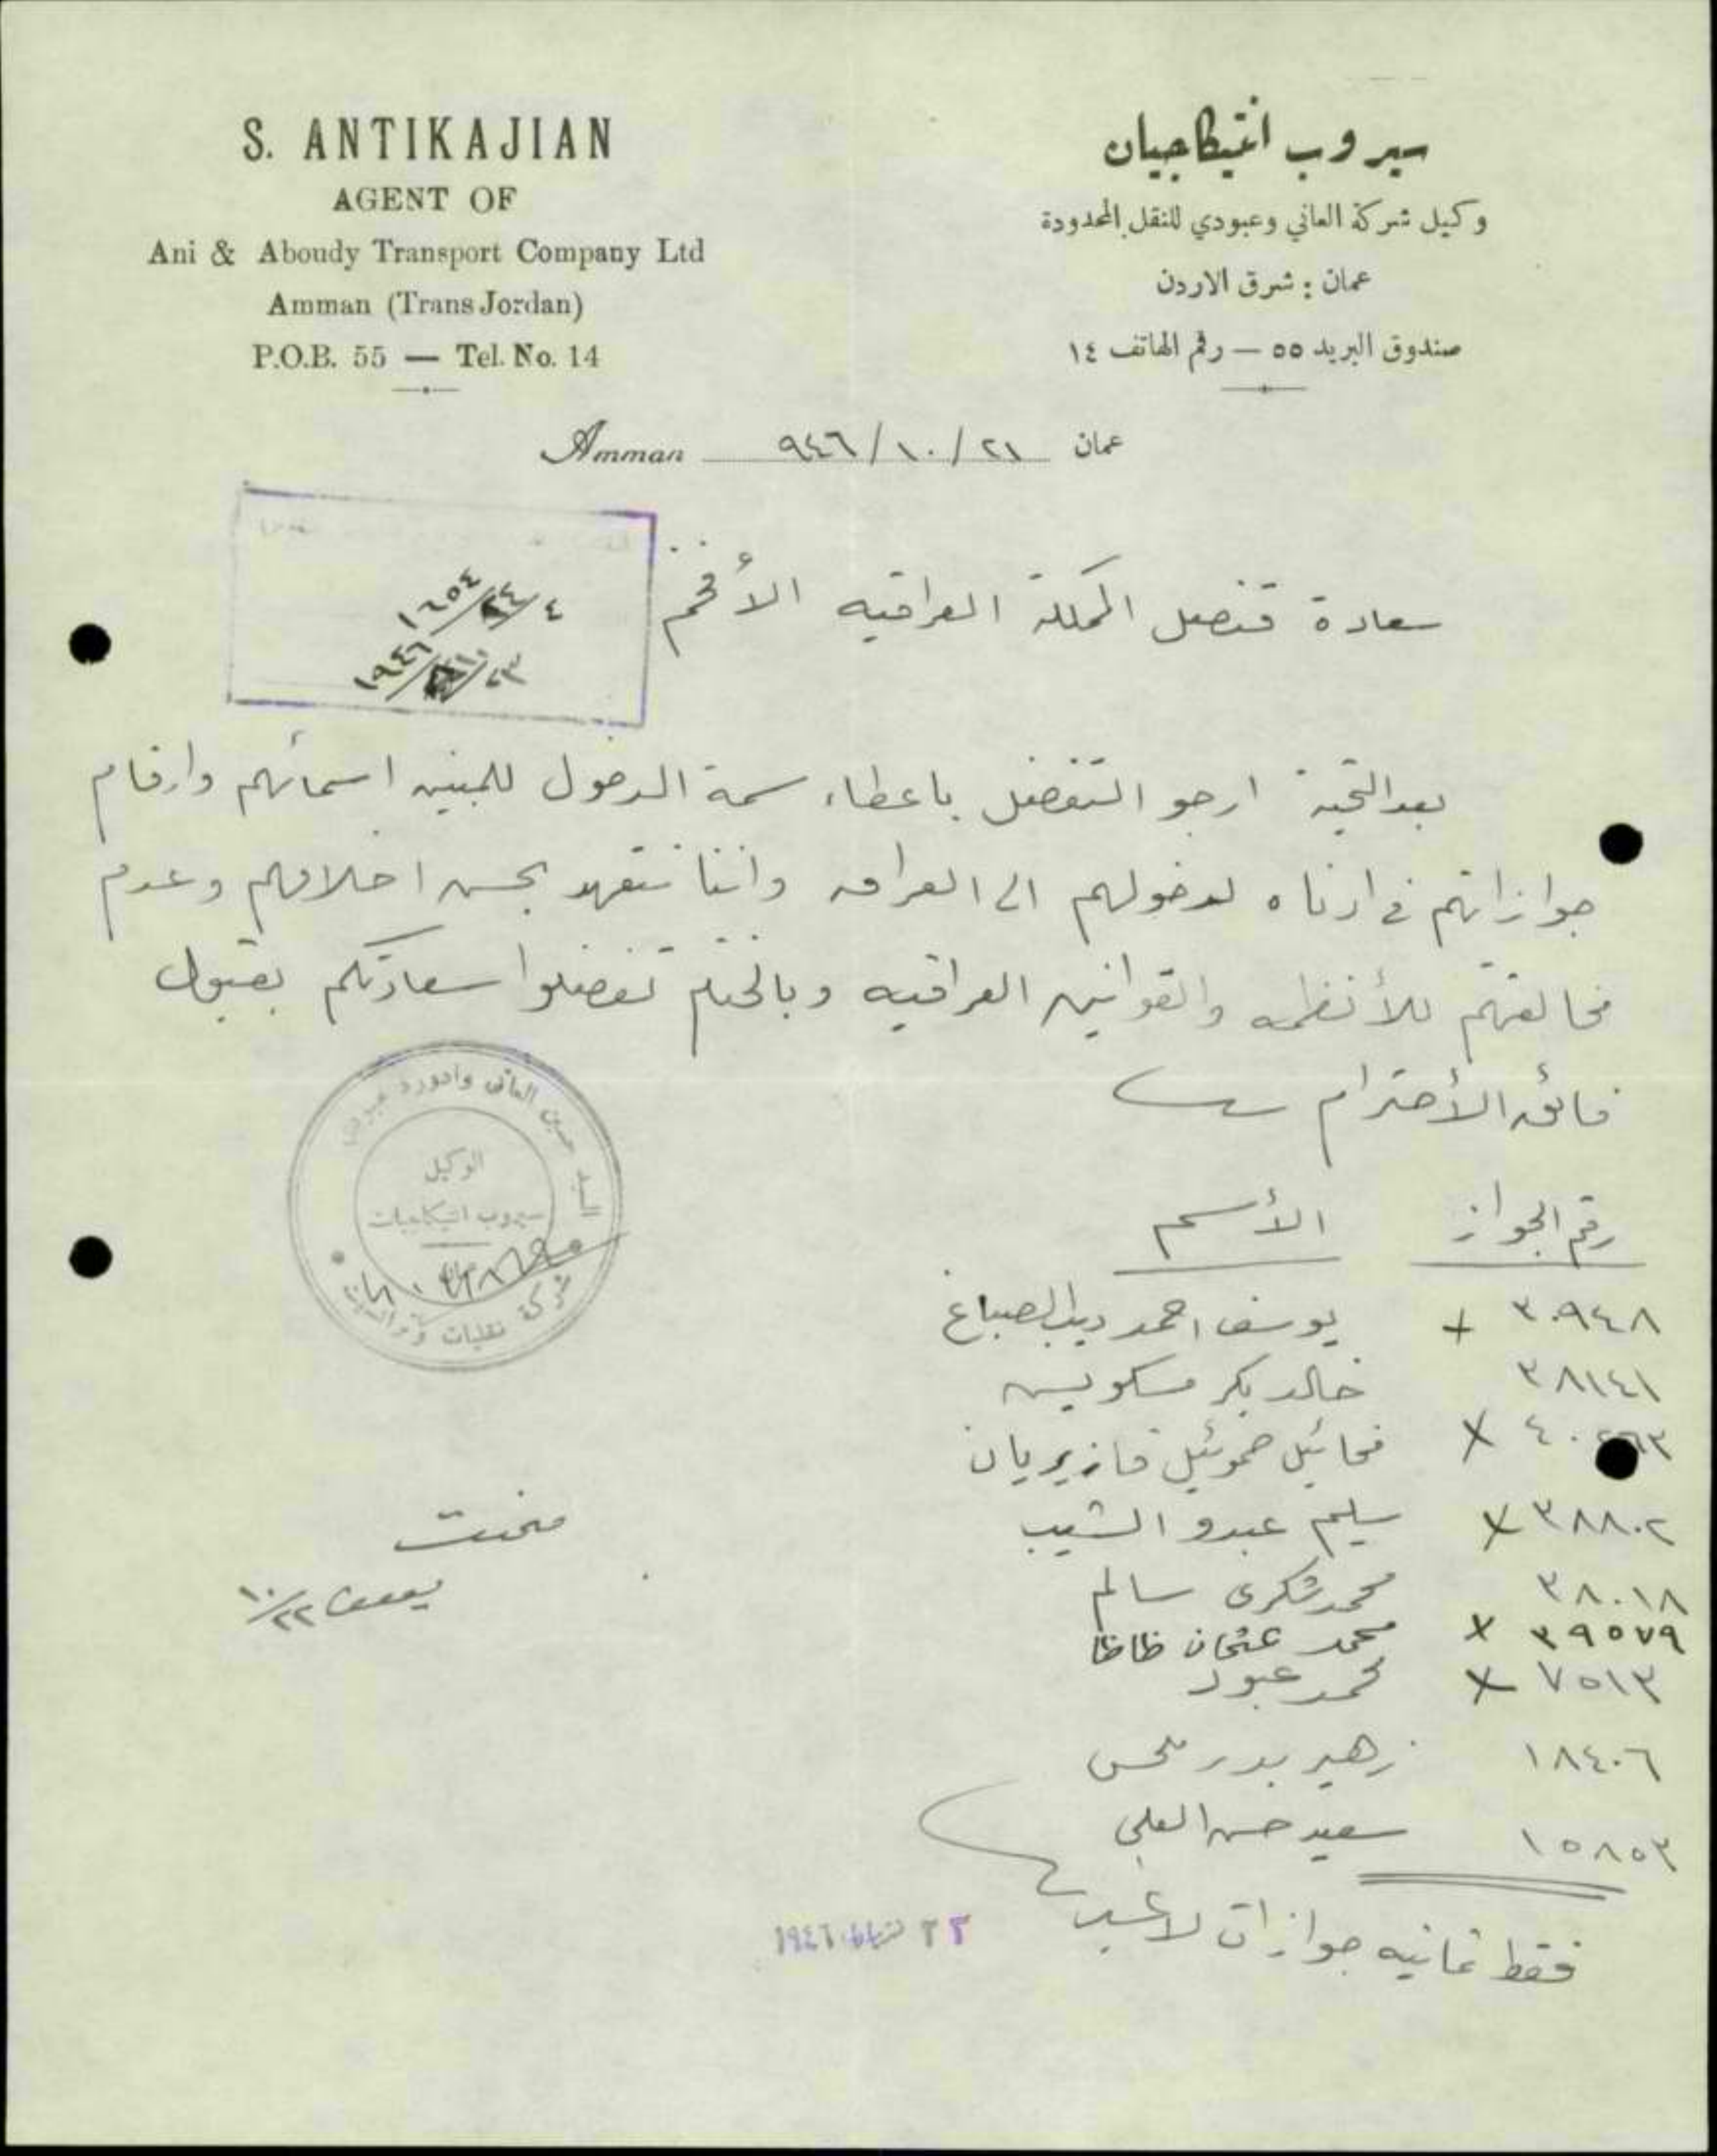 S. ANTIKAJIAN
AGENT OF
Ani & Aboudy Transport Company Ltd
Amman (Trans Jordan)
P.O.B. 55 — Tel. No. 14
سيروب انتيكاجيان
وكيل شركة العاني وعبودي للنقل المحدودة
عمان : شرق الاردن
صندوق البريد ٥٥ — رقم الهاتف ١٤
Amman ٩٤٦/١٠/٢١ عمان
١٦٥٤/٢٤/٤
سعادة قنصل المملكة العراقيه الأفخم
بعد التحية ارجو التفضل باعطاء سمة الدخول للمبينه اسمائهم وارقام
جوازاتهم في ادناه لدخولهم الى العراق واننا نتعهد بحسن اخلاقهم وعدم
مخالفتهم للأنظمه والقوانين العراقيه وبالختام تفضلوا سعادتكم بقبول
فائق الأحترام
السيد حسين العاني وادورد عبودي
الوكيل
سيروب انتيكاجيان
شركة نقليات
رقم الجواز الأسم
٣٠٩٤٨ + يوسف احمد ديب الصباغ
٣٨١٤١ خالد بكر مسكويس
٤٠٢٦٣ X مخائيل صموئيل قازيريان
٣٨٨٠٢ X سليم عبدو الشيب
٣٨٠١٨ محمد شكرى سالم
٣٩٥٧٩ X محمد عثمان ظاظا
٧٥١٣ X محمد عبود
١٨٤٠٦ زهير بدر ملحس
١٥٨٥٣ سعيد حسن العلي
فقط ثمانيه جوازات لاغير
منحت
١٠/٢٢
٢٢ ١٩٤٦